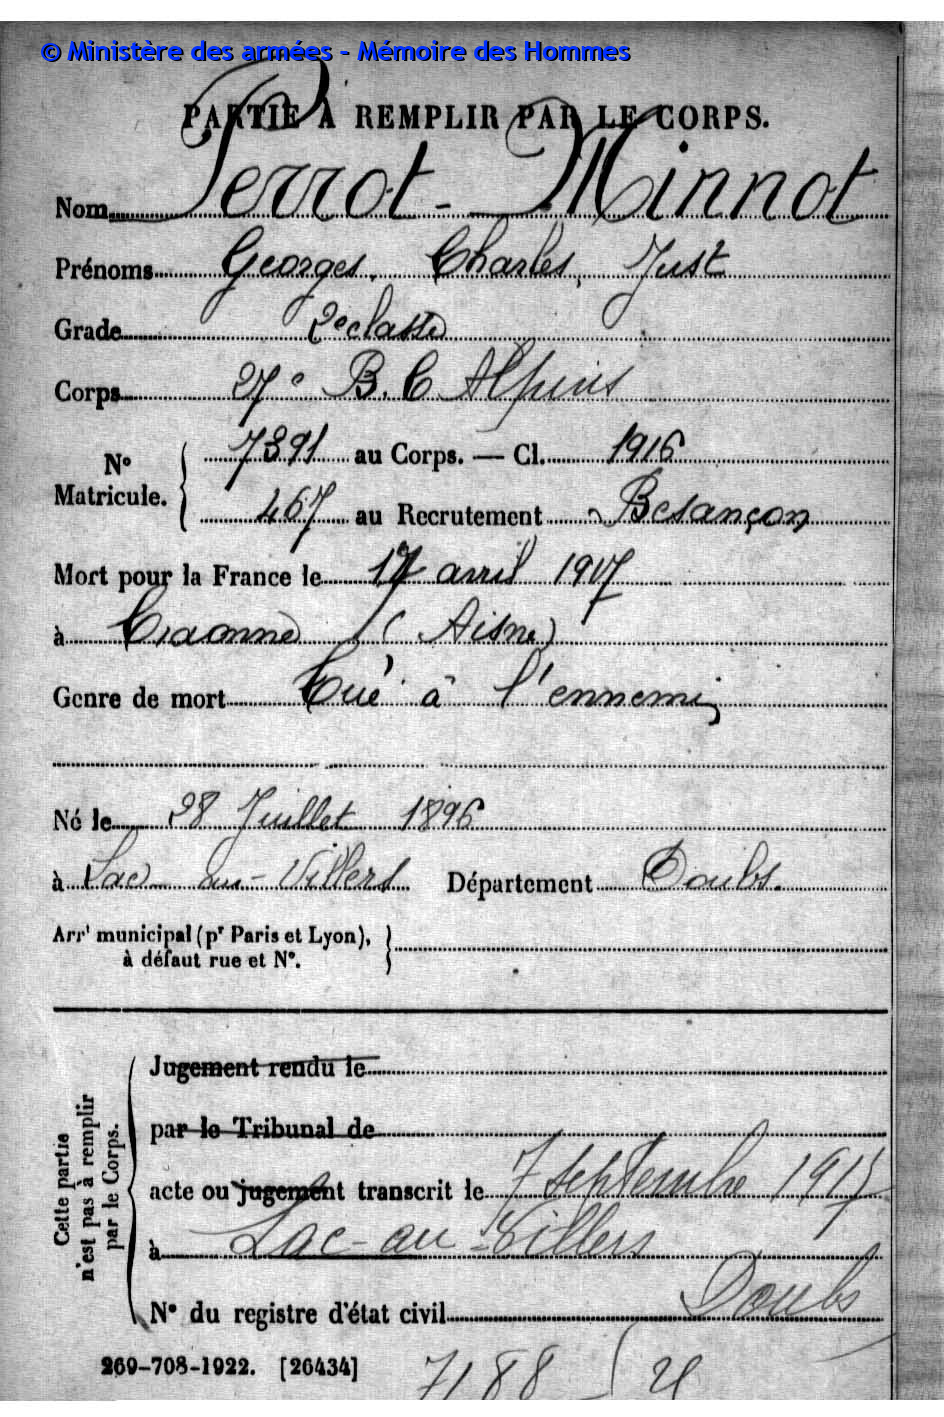 © Ministère des armées - Mémoire des Hommes
PARTIE À REMPLIR PAR LE CORPS.
Nom Perrot-Minnot
Prénoms Georges, Charles, Just
Grade 2e classe
Corps 27e B. C Alpins
N° Matricule. { 7391 au Corps. — Cl. 1916
467 au Recrutement Besançon
Mort pour la France le 17 avril 1917
à Craonne (Aisne)
Genre de mort Tué à l'ennemi
Né le 28 Juillet 1896
à Lac-au-Villers Département Doubs.
Arrt municipal (pr Paris et Lyon), }
à défaut rue et N°.
Cette partie n'est pas à remplir par le Corps.
Jugement rendu le
par le Tribunal de
acte ou jugement transcrit le 7 septembre 1917
à Lac-au-Villers
Doubs
N° du registre d'état civil
269-708-1922. [26434]
7188